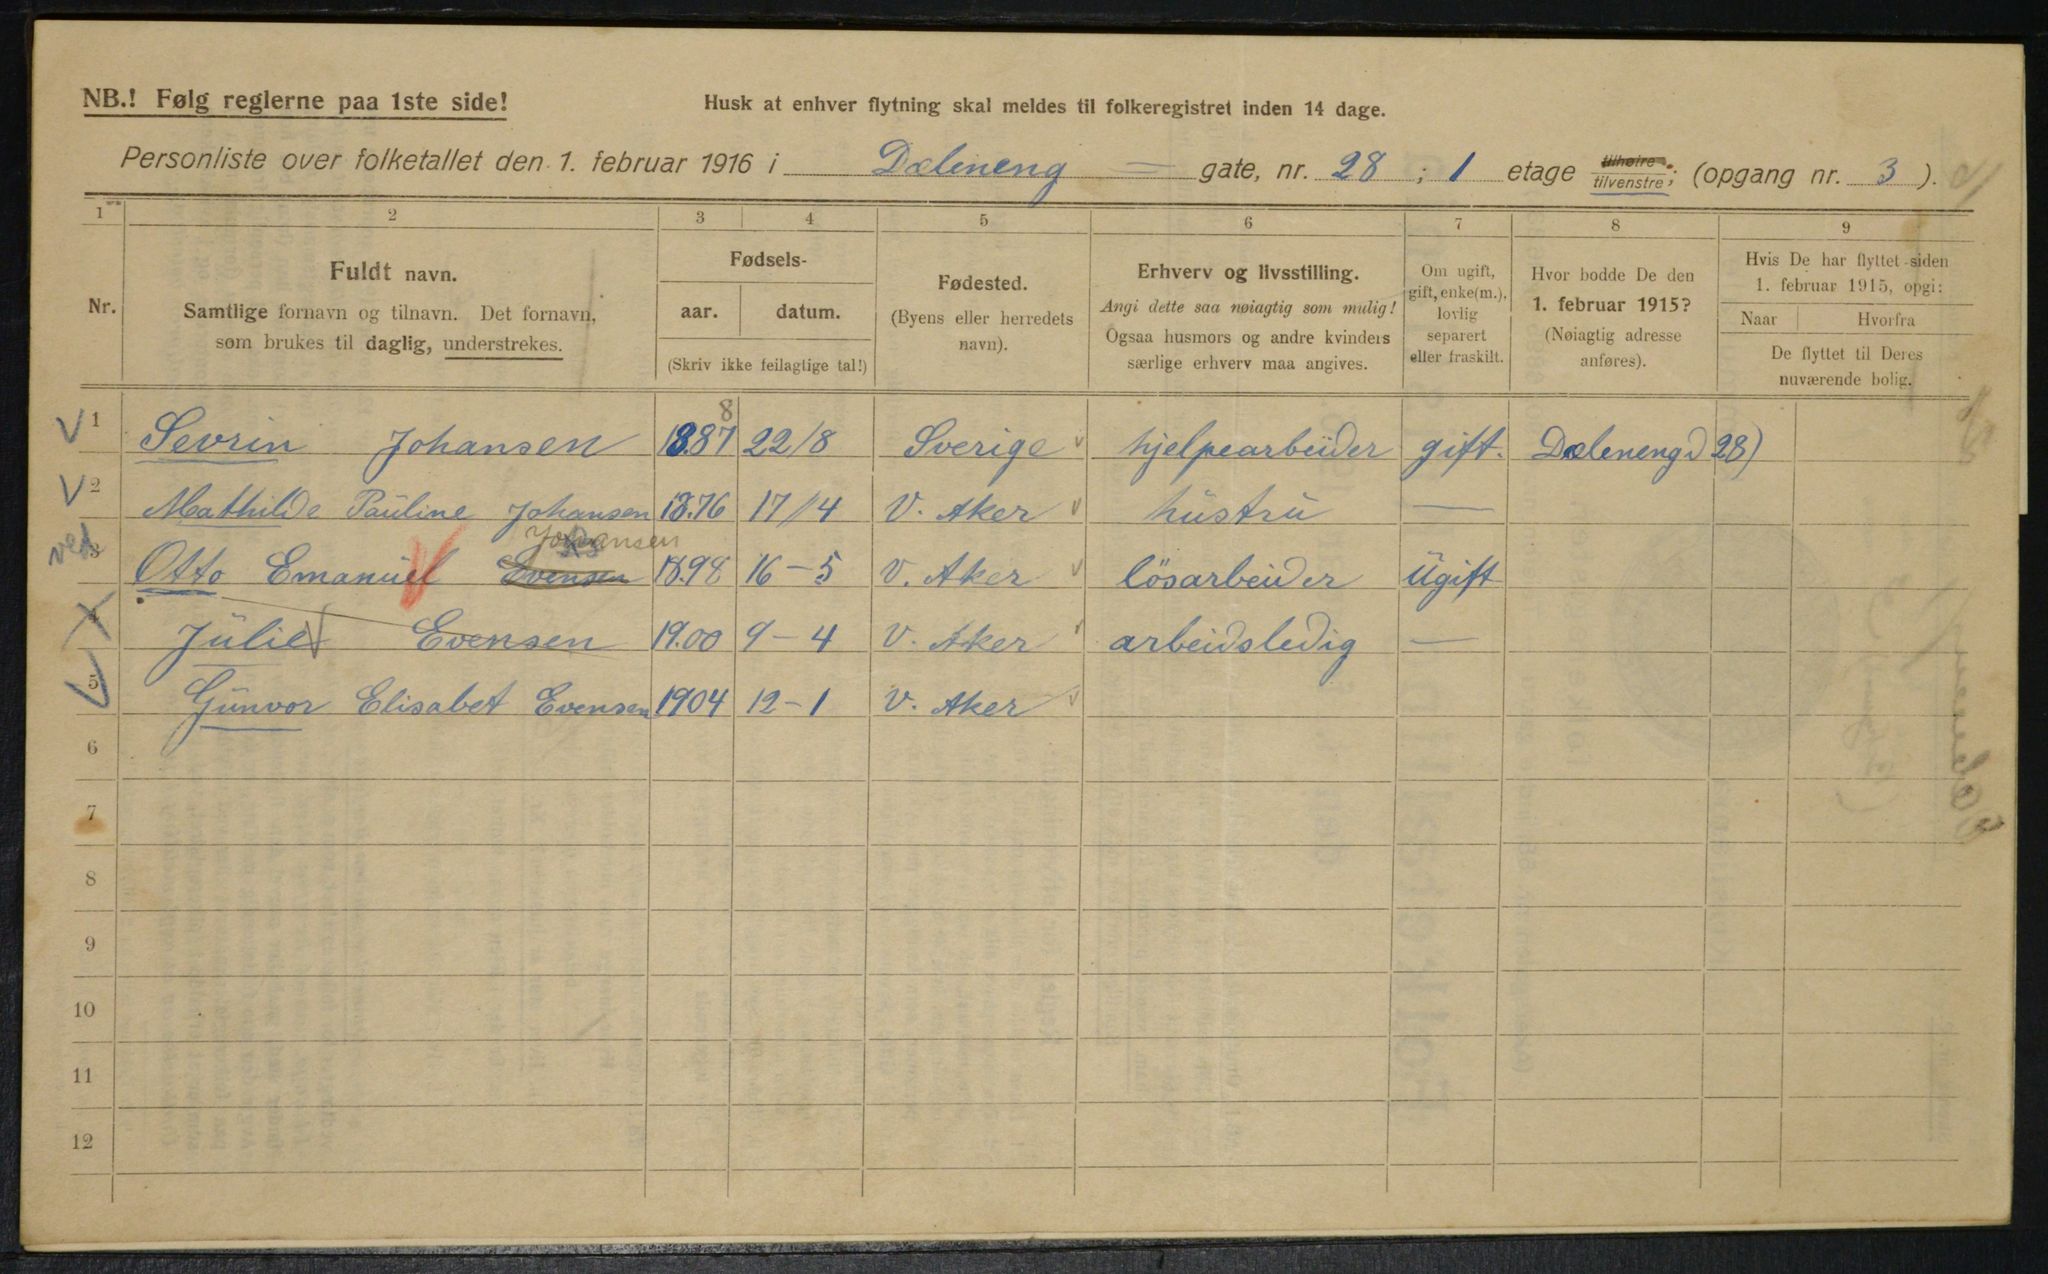 NB.! Følg reglerne paa 1ste side!
Husk at enhver flytning skal meldes til folkeregistret inden 14 dage.
Personliste over folketallet den 1. februar 1916 i Dælineng — gate, nr. 28 ; 1 etage tilhøire tilvenstre; (opgang nr. 3 ).
1 2 3 4 5 6 7 8 9
Nr.
Fuldt navn.
Samtlige fornavn og tilnavn. Det fornavn,
som brukes til daglig, understrekes.
Fødsels-
aar. datum.
(Skriv ikke feilagtige tal!)
Fødested.
(Byens eller herredets
navn).
Erhverv og livsstilling.
Angi dette saa nøiagtig som mulig!
Ogsaa husmors og andre kvinders
særlige erhverv maa angives.
Om ugift,
gift, enke(m.),
lovlig
separert
eller fraskilt.
Hvor bodde De den
1. februar 1915?
(Nøiagtig adresse
anføres).
Hvis De har flyttet siden
1. februar 1915, opgi:
Naar Hvorfra
De flyttet til Deres
nuværende bolig.
8
V 1 Sevrin Johansen 1887 22/8 Sverige hjelpearbeider gift. Dælenengd 28)
V 2 Mathilde Pauline Johansen 18.76 17/4 V. Aker hustru —
Johansen
3 Otto Emanuel Evensen 18.98 16-5 V. Aker lösarbeider Ugift
4 Julie Evensen 19.00 9-4 V. Aker arbeidsledig —
V 5 Gunvor Elisabet Evensen 1904 12-1 V. Aker
6
7
8
9
10
11
12